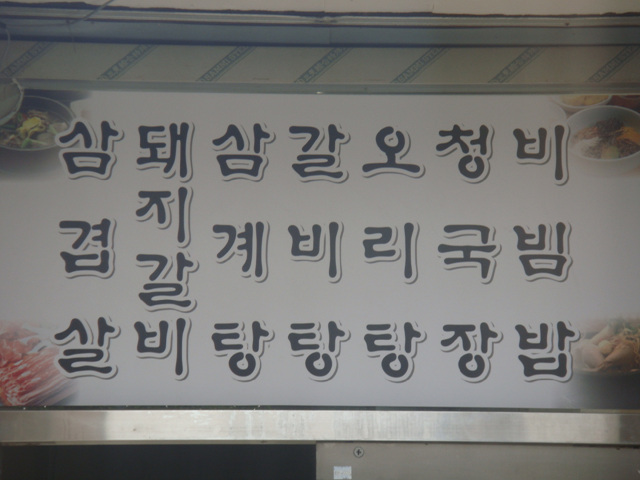 삼겹살
돼지갈비
삼계탕
갈비탕
오리탕
청국장
비빔밥